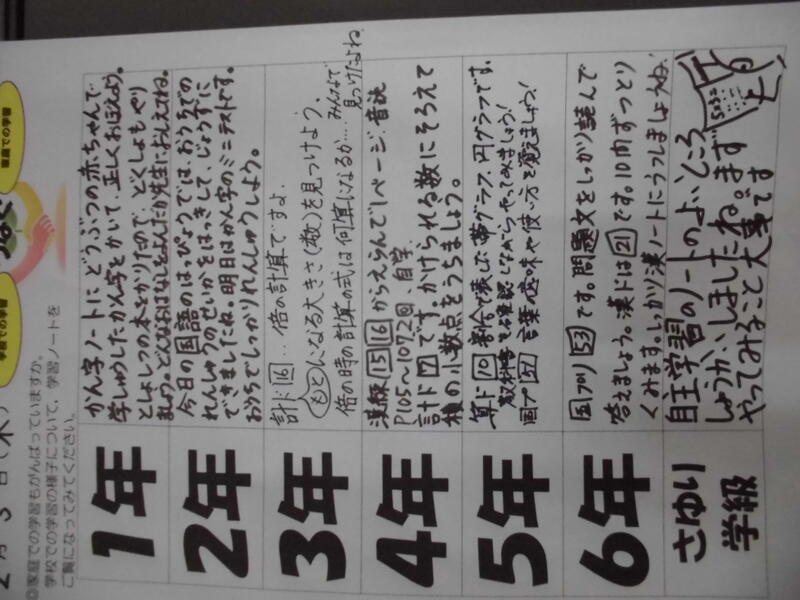 2月3日(木)
学校での学習
家庭での学習
◎家庭での学習もがんばっていますか。
学校での学習の様子について、学習ノートを
ご覧になってみてください。
1年
かん字ノートにどうぶつの赤ちゃんで
学しゅうしたかん字をかいて、正しくおぼえよう。
としょしつの本をかりたので、どくしょもやり
ましょう。どんなおはなしをよんだか先生におしえてね。
2年
今日の国語のはっぴょうでは、おうちでの
れんしゅうのせいかをはっきして、じょうずに
できましたね。明日はかん字のミニテストです。
おうちでしっかりれんしゅうしましょう。
3年
計ド16…倍の計算ですよ。
もとになる大きさ(数)を見つけよう。
倍の時の計算の式は何算になるか…みんなで
見つけたよね
4年
漢練15 16からえらんで1ページ、音読
P105~107 2回、自学
計ド17です。かけられる数にそろえて
積の小数点をうちましょう。
5年
算ド10 割合で表した帯グラフ、円グラフです。
教科書を確認しながらやってみましょう!
国プ57 言葉の意味や使い方を覚えましょう!
6年
国プリ53です。問題文をしっかり読んで
答えましょう。漢ドは21です。10問ずつとり
くみます。しっかり漢ノートにうつしましょうね。
さゆり
学級
自主学習のノートのよいところ
しょうかいしましたね。まず
やってみること大事です